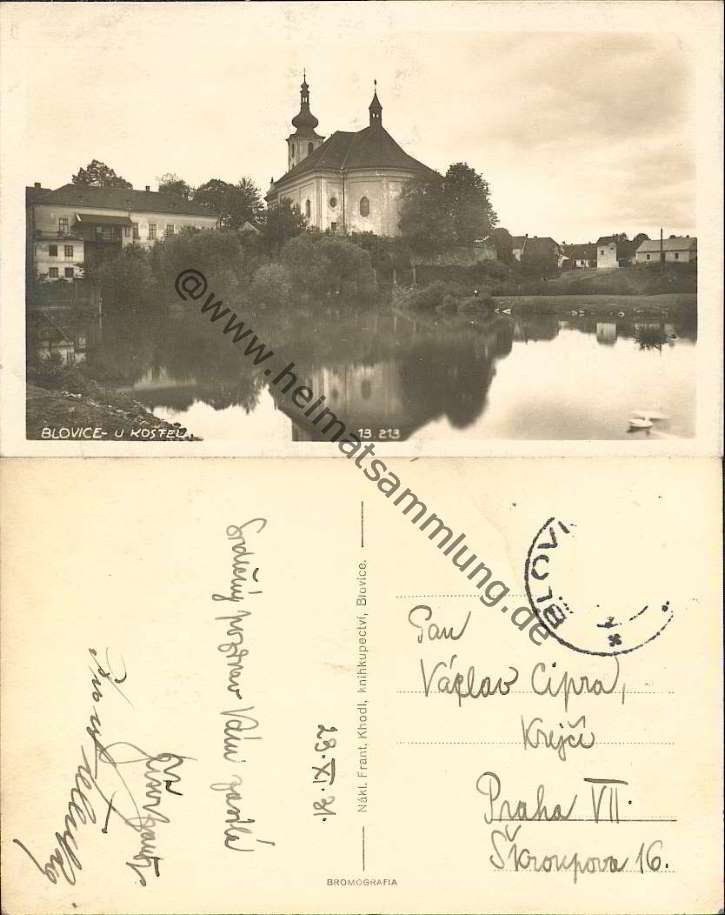 BLOVICE - U KOSTELA
13 213
@www.heimatsammlung.de
Srdečný pozdrav Vám zasílá
29.XI.31.
Nákl. Frant. Khodl, knihkupectví, Blovice.
BROMOGRAFIA
BLOVI
Pan
Václav Cipra,
Krejčí
Praha VII.
Škroupova 16.